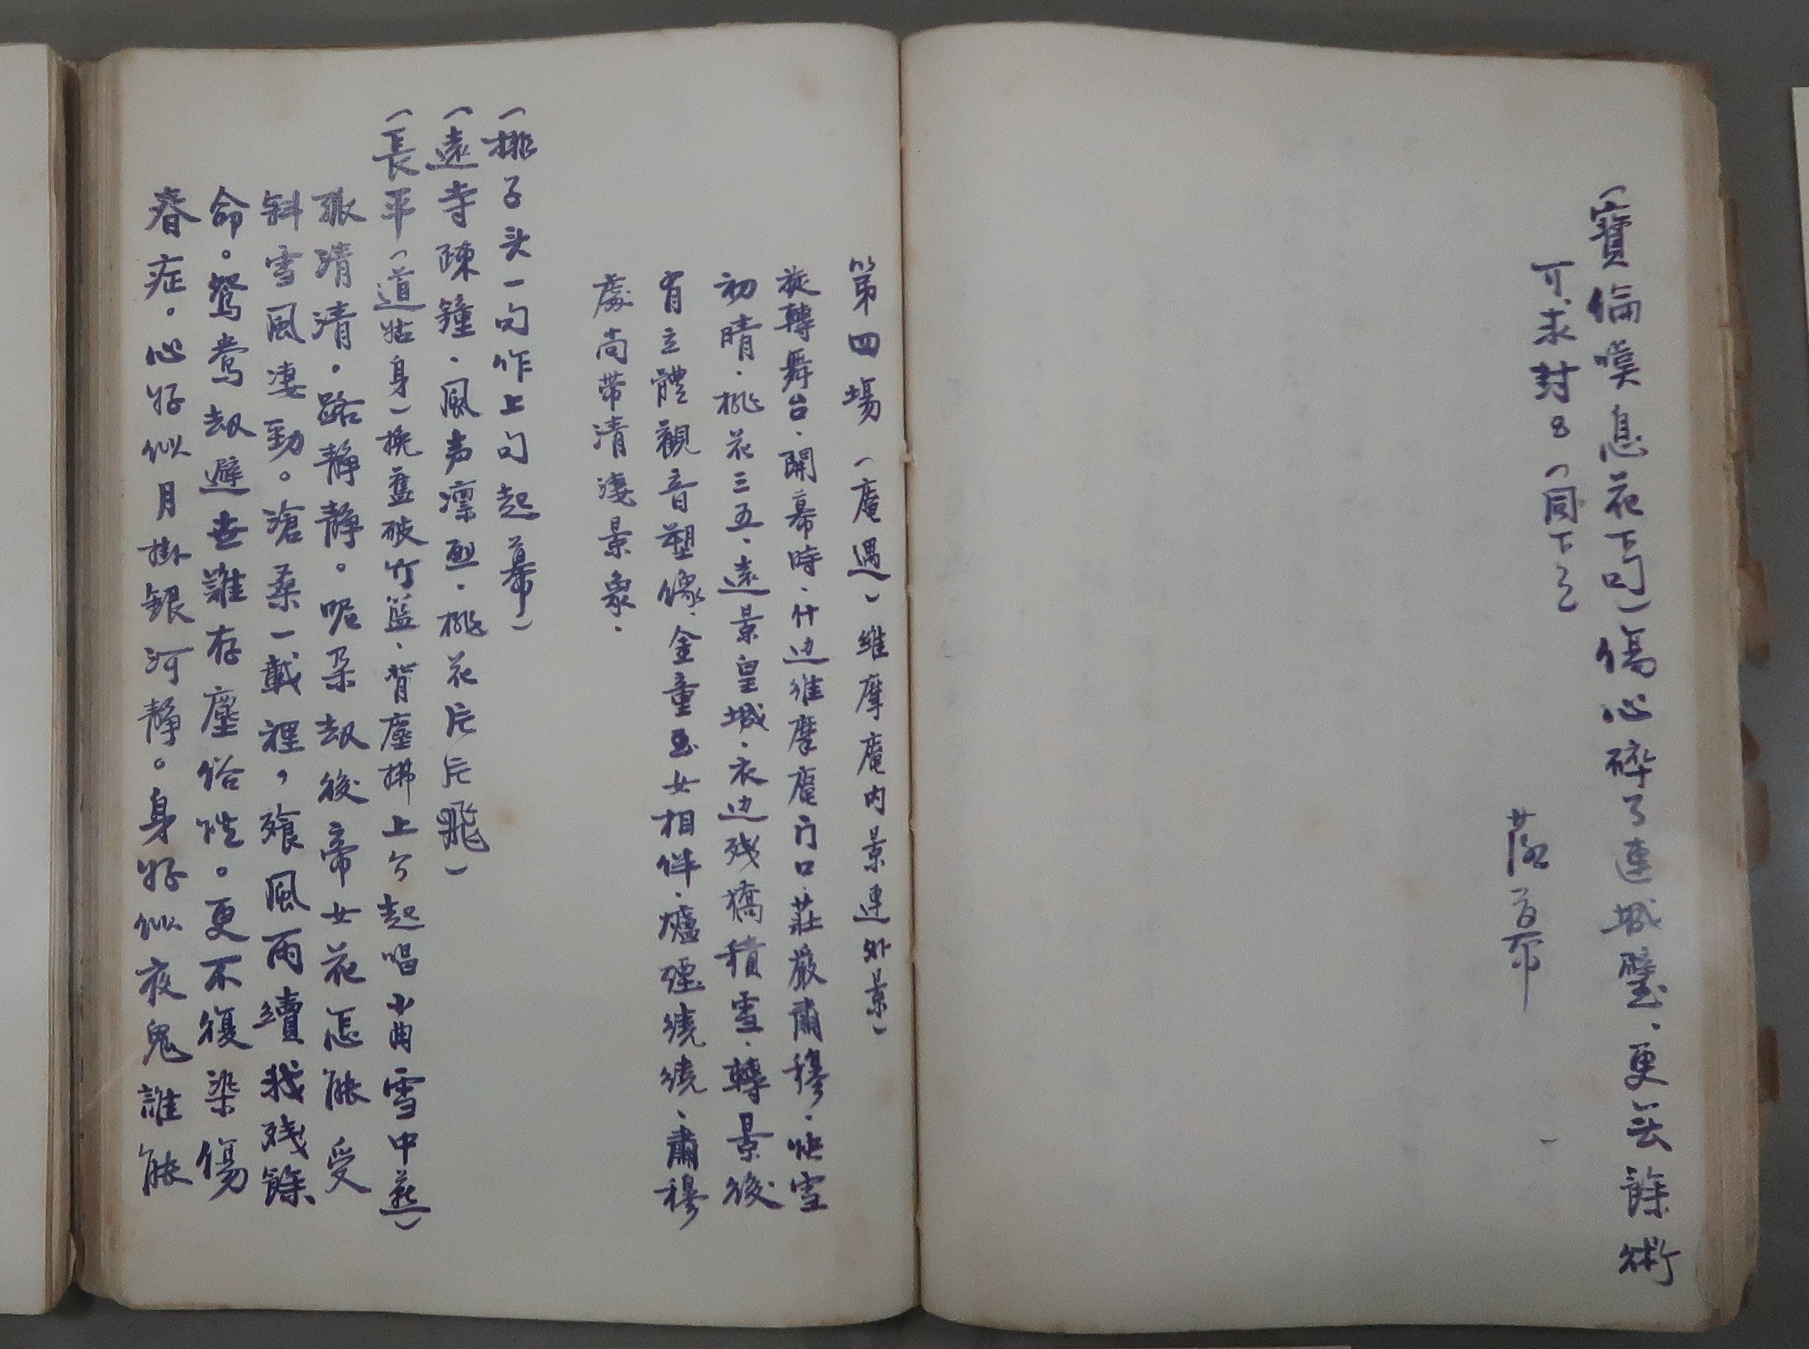 （寶倫嘆息花下句）傷心碎了連城璧．更無餘術
可求封8（同下）
落幕
第四場（庵遇）維摩庵内景連外景）
旋轉舞台．開幕時．什边維摩庵门口．莊嚴肅穆．快雪
初晴．桃花三五．遠景皇城．衣边残橋積雪．轉景後
有立體觀音塑像．金童玉女相伴．爐煙繞繞．肅穆
處尚帶清淒景象．
（排子头一句作上句起幕）
（遠寺疎鐘．風声凛烈．桃花片片飛）
（長平（道姑身）挽舊破竹籃．背塵拂上介起唱小曲雪中燕）
孤清清。路靜靜。呢朵劫後帝女花怎能受
斜雪風淒勁。滄桑一載裡，飧風雨續我残餘
命。鴛鴦劫避世難存塵俗性。更不復染傷
春症。心好似月掛銀河靜。身好似夜鬼誰能